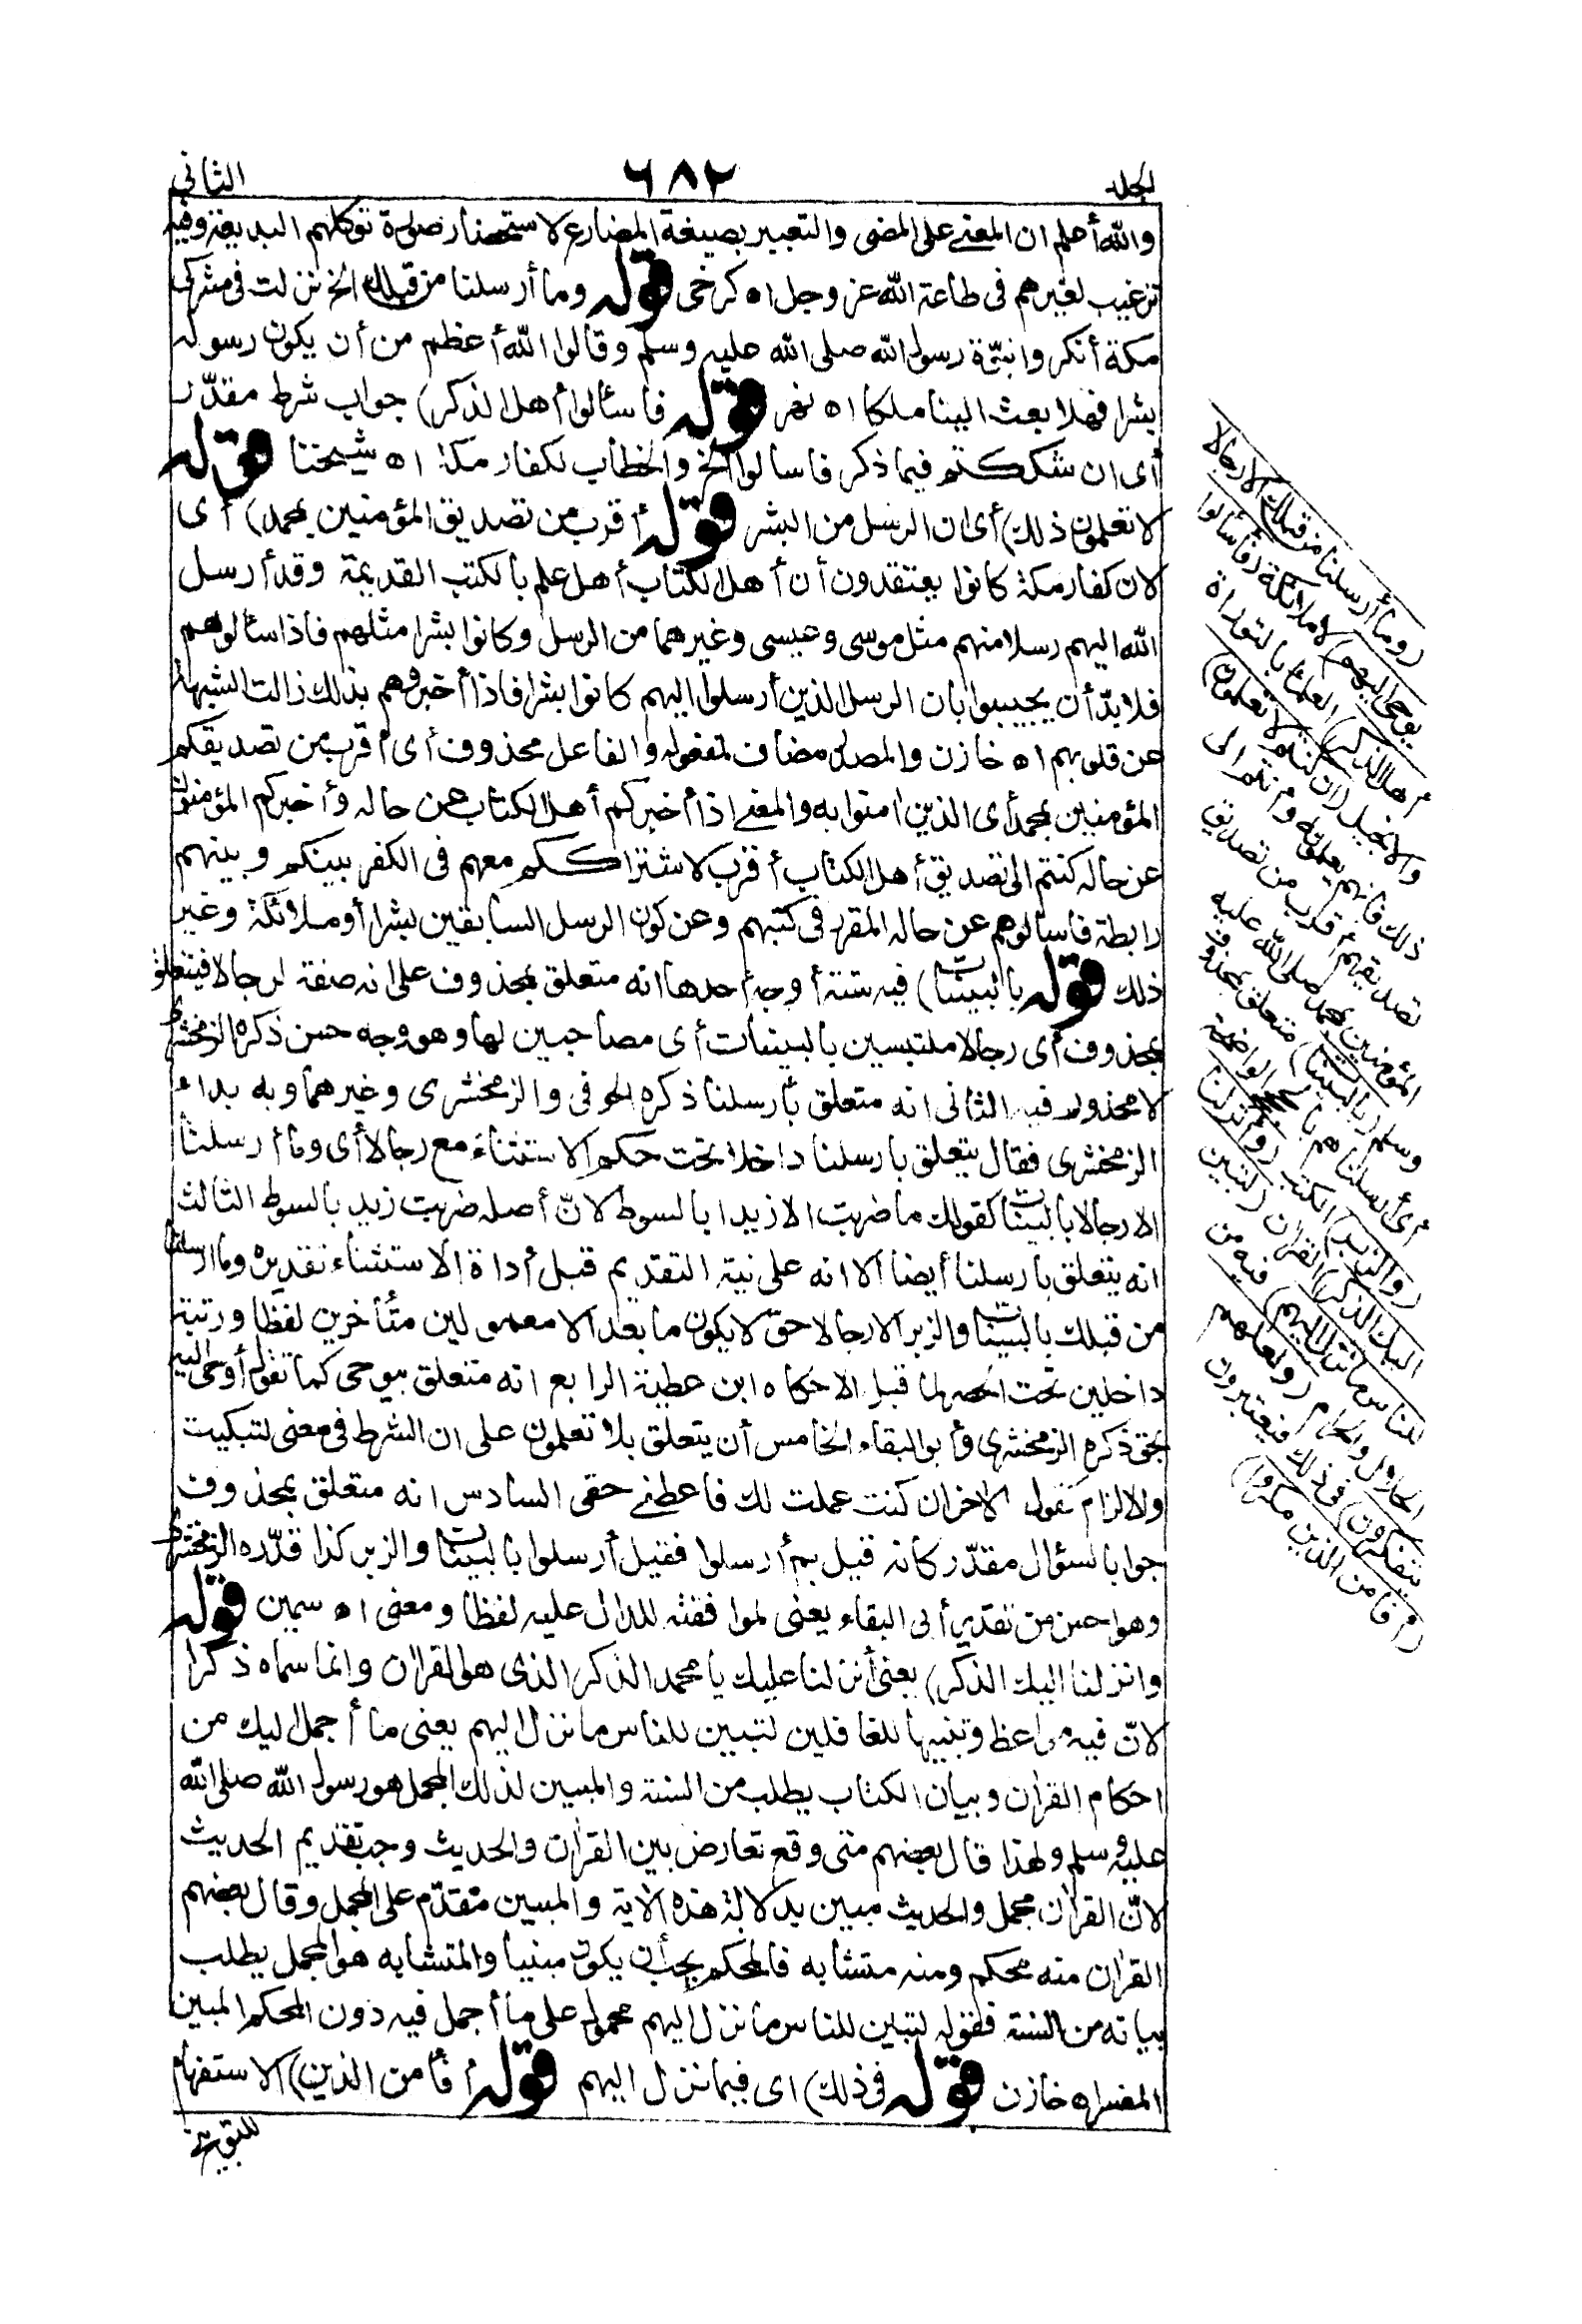 الجلد
٦٨٢
الثانى
والله أعلم ان المعنى على المضى والتعبير بصيغة المضارع لاستحضار صورة توكلهم البديعة وفيه
ترغيب لغيرهم فى طاعة الله عز وجل اه كرخى قوله وما أرسلنا من قبلك الخ نزلت فى مشركى
مكة أنكروا نبوّة رسول الله صلى الله عليه وسلم وقالوا الله أعظم من أن يكون رسوله
بشرا فهلا بعث الينا ملكا اه نهر قوله فاسألوا أهل الذكر) جواب شرط مقدّر
أى ان شككتم فيما ذكر فاسألوا الخ والخطاب لكفار مكة اه شيخنا قوله
لا تعلمون ذلك) أى ان الرسل من البشر قوله أقرب من تصديق المؤمنين بمحمد) أى
لان كفار مكة كانوا يعتقدون أن أهل الكتاب أهل علم بالكتب القديمة وقد أرسل
الله اليهم رسلا منهم مثل موسى وعيسى وغيرهما من الرسل وكانوا بشرا مثلهم فاذا سألوهم
فلابدّ أن يجيبوا بأن الرسل الذين أرسلوا اليهم كانوا بشرا فاذا أخبروهم بذلك زالت الشبهة
عن قلوبهم اه خازن والمصدر مضاف لمفعوله والفاعل محذوف أى أقرب من تصديقكم
المؤمنين بمحمد أى الذين امنوا به والمعنى اذا أخبركم أهل الكتاب عن حاله وأخبركم المؤمنون
عن حاله كنتم الى تصديق أهل الكتاب أقرب لاشتراككم معهم فى الكفر بينكم وبينهم
رابطة فاسألوهم عن حاله المقرر فى كتبهم وعن كون الرسل السابقين بشرا أو ملائكة وغير
ذلك قوله بالبينات) فيه ستة أوجه أحدها انه متعلق بمحذوف على انه صفة لرجالا فيتعلق
بمحذوف أى رجالا ملتبسين بالبينات أى مصاحبين لها وهو وجه حسن ذكره الزمخشرى
لا محذور فيه الثانى انه متعلق بأرسلنا ذكره الحوفى والزمخشرى وغيرهما وبه بداء
الزمخشرى فقال يتعلق بارسلنا داخلا تحت حكم الاستثناء مع رجالا أى وما أرسلنا
الا رجالا بالبينات كقولك ما ضربت الا زيدا بالسوط لانّ أصله ضربت زيد بالسوط الثالث
انه يتعلق بارسلنا أيضا الا انه على نية التقديم قبل أداة الاستثناء تقديره وما ارسلنا
من قبلك بالبينات والزبر الا رجالا حتى لا يكون ما بعد الا معمولين متأخرين لفظا ورتبة
داخلين تحت الحصر لما قبل الا حكاه ابن عطية الرابع انه متعلق بيوحى كما تقول أوحى اليه
بحق ذكره الزمخشرى وأبو البقاء الخامس أن يتعلق بلا تعلمون على ان الشرط فى معنى لتبكيت
والالزام كقول الاخر ان كنت عملت لك فاعطنى حقى السادس انه متعلق بمحذوف
جوابا لسؤال مقدّر كأنه قيل بم أرسلوا فقيل أرسلوا بالبينات والزبر كذا قدّره الزمخشرى
وهو احسن من تقدير أبى البقاء يعنى لموافقته للدال عليه لفظا ومعنى اه سمين قوله
وانزلنا اليك الذكر) يعنى أنزلنا عليك يا محمد الذكر الذى هو القران وانما سماه ذكرا
لانّ فيه مواعظ وتنبيها للغافلين لتبين للناس ما نزل اليهم يعنى ما أجمل اليك من
احكام القران وبيان الكتاب يطلب من السنة والمبين لذلك المجمل هو رسول الله صلى الله
عليه وسلم ولهذا قال بعضهم متى وقع تعارض بين القران والحديث وجب تقديم الحديث
لانّ القران مجمل والحديث مبين بدلالة هذه الاية والمبين مقدّم على المجمل وقال بعضهم
القران منه محكم ومنه متشابه فالمحكم يجب أن يكون مبنيا والمتشابه هو المجمل يطلب
بيانه من السنة فقوله لتبين للناس ما نزل اليهم محمول على ما أجمل فيه دون المحكم المبين
المفسر اه خازن قوله فى ذلك) اى فيما نزل اليهم قوله أفأمن الذين) الاستفهام
للتوبيخ
(وما أرسلنا من قبلك الا رجالا
يوحى اليهم) لا ملائكة (فاسألوا
أهل الذكر) العلماء بالتوراة
والانجيل (ان كنتم لا تعلمون)
ذلك فانهم يعلمونه وأنتم الى
تصديقهم أقرب من تصديق
المؤمنين بمحمد صلى الله عليه
وسلم (بالبينات) متعلق بمحذوف
أى أرسلناهم بالحجج الواضحة
(والزبر) الكتب (وأنزلنا
اليك الذكر) القران (لتبين
للناس ما نزل اليهم) فيه من
الحلال والحرام (ولعلهم
يتفكرون) فى ذلك فيعتبرون
(أفأمن الذين مكروا)